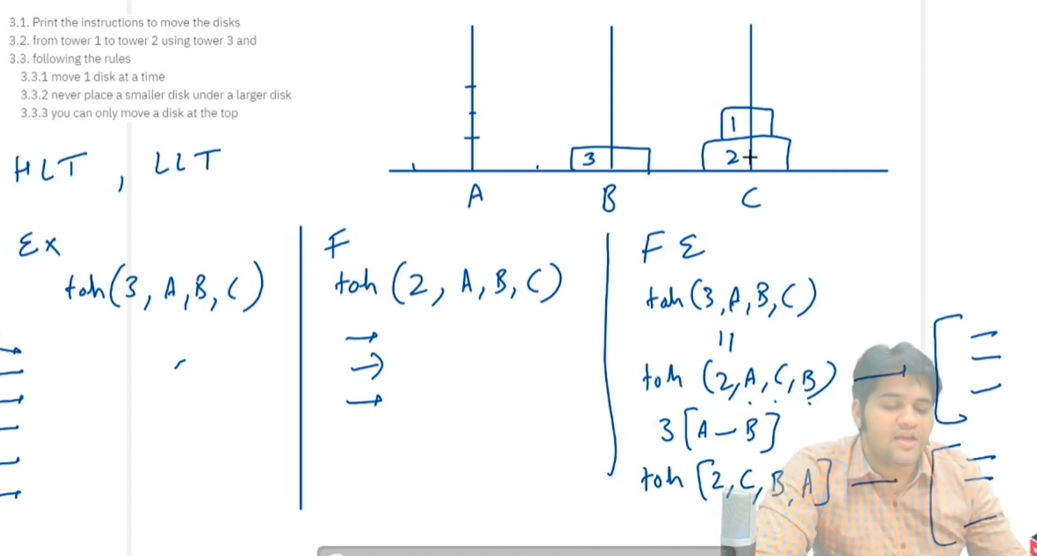 3.1. Print the instructions to move the disks
3.2. from tower 1 to tower 2 using tower 3 and
3.3. following the rules
3.3.1 move 1 disk at a time
3.3.2 never place a smaller disk under a larger disk
3.3.3 you can only move a disk at the top
HLT , LLT
1
3
2
A
B
C
Ex
toh(3, A,B,C)
F
toh (2, A,B,C)
F E
toh(3,A,B,C)
toh (2,A,C,B)
3[A-B]
toh [2,C,B,A]